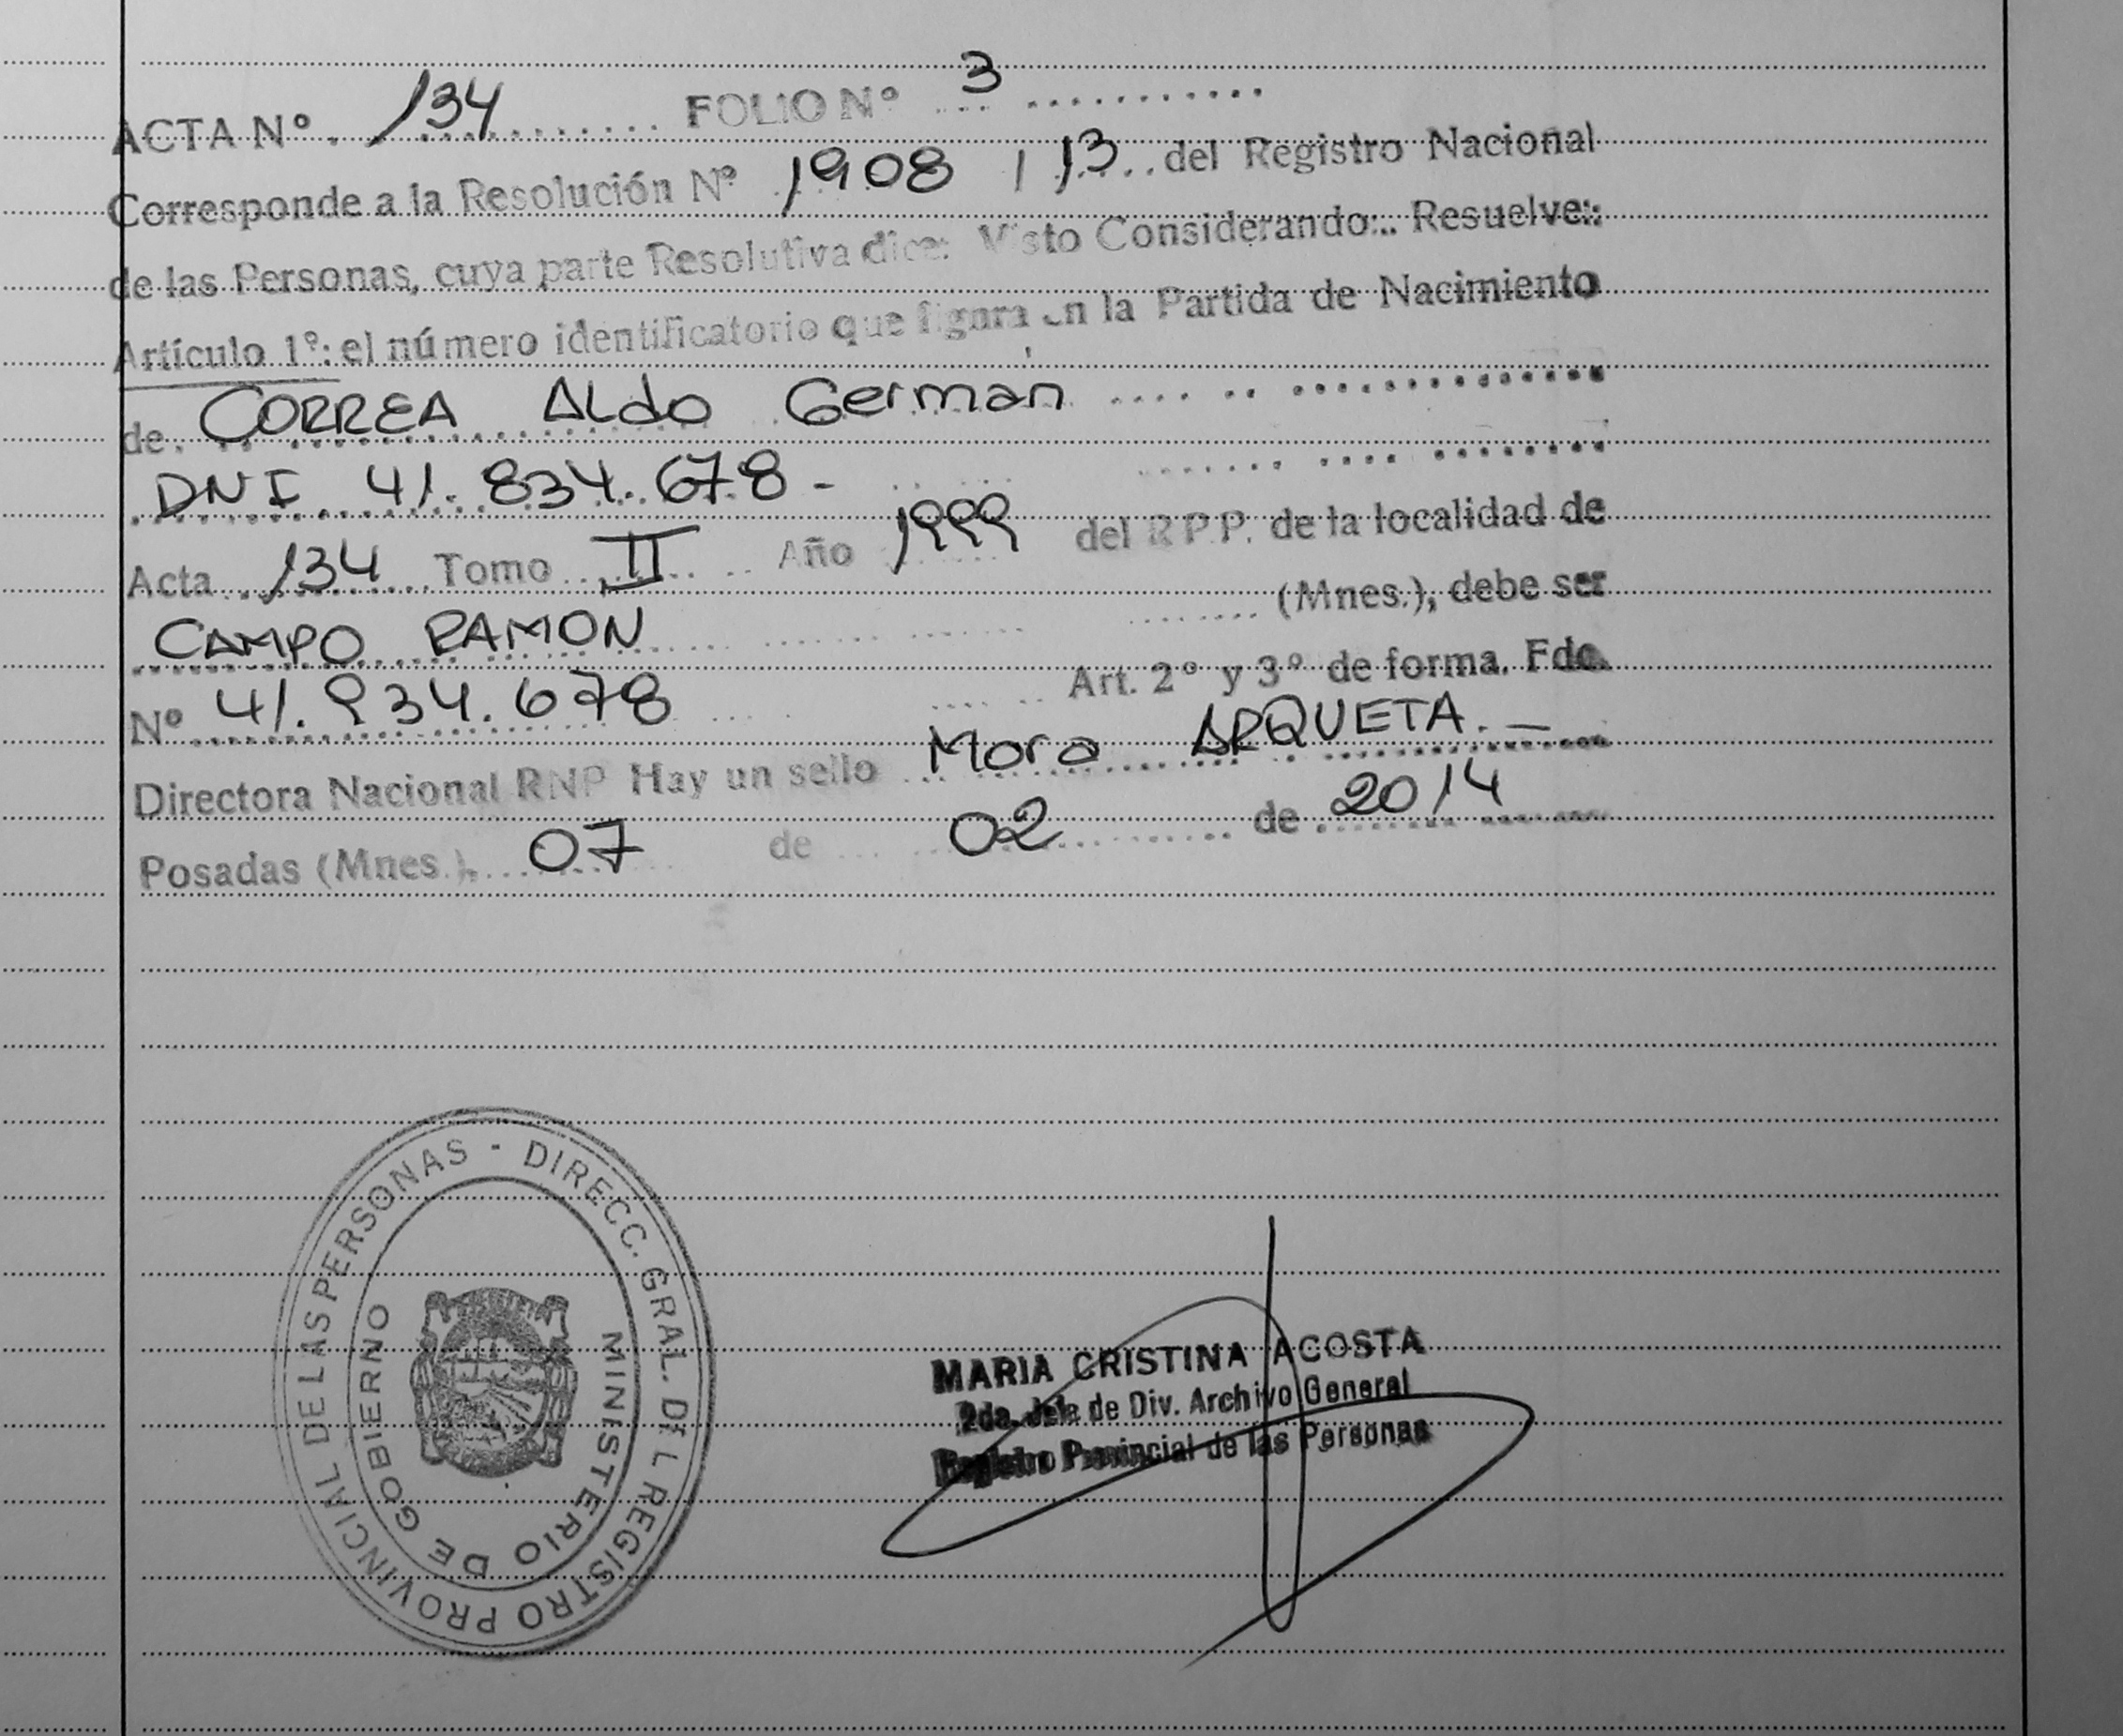 ACTA Nº 134 FOLIO Nº 3
Corresponde a la Resolución Nº 1908 / 13 del Registro Nacional
de las Personas, cuya parte Resolutiva dice: Visto Considerando:.. Resuelve:
Artículo 1º: el número identificatorio que figura en la Partida de Nacimiento
de CORREA Aldo German
DNI 41.834.678-
Acta 134 Tomo II Año 1999 del R.P.P. de la localidad de
CAMPO RAMON (Mnes.), debe ser
Nº 41.834.678 Art. 2º y 3º de forma. Fdo.
Directora Nacional RNP Hay un sello Mora ARQUETA.-
Posadas (Mnes.), 07 de 02 de 2014
DIRECC. GRAL. DEL REGISTRO PROVINCIAL DE LAS PERSONAS -
MINISTERIO DE GOBIERNO
MARIA CRISTINA ACOSTA
2da. Jefa de Div. Archivo General
Registro Provincial de las Personas